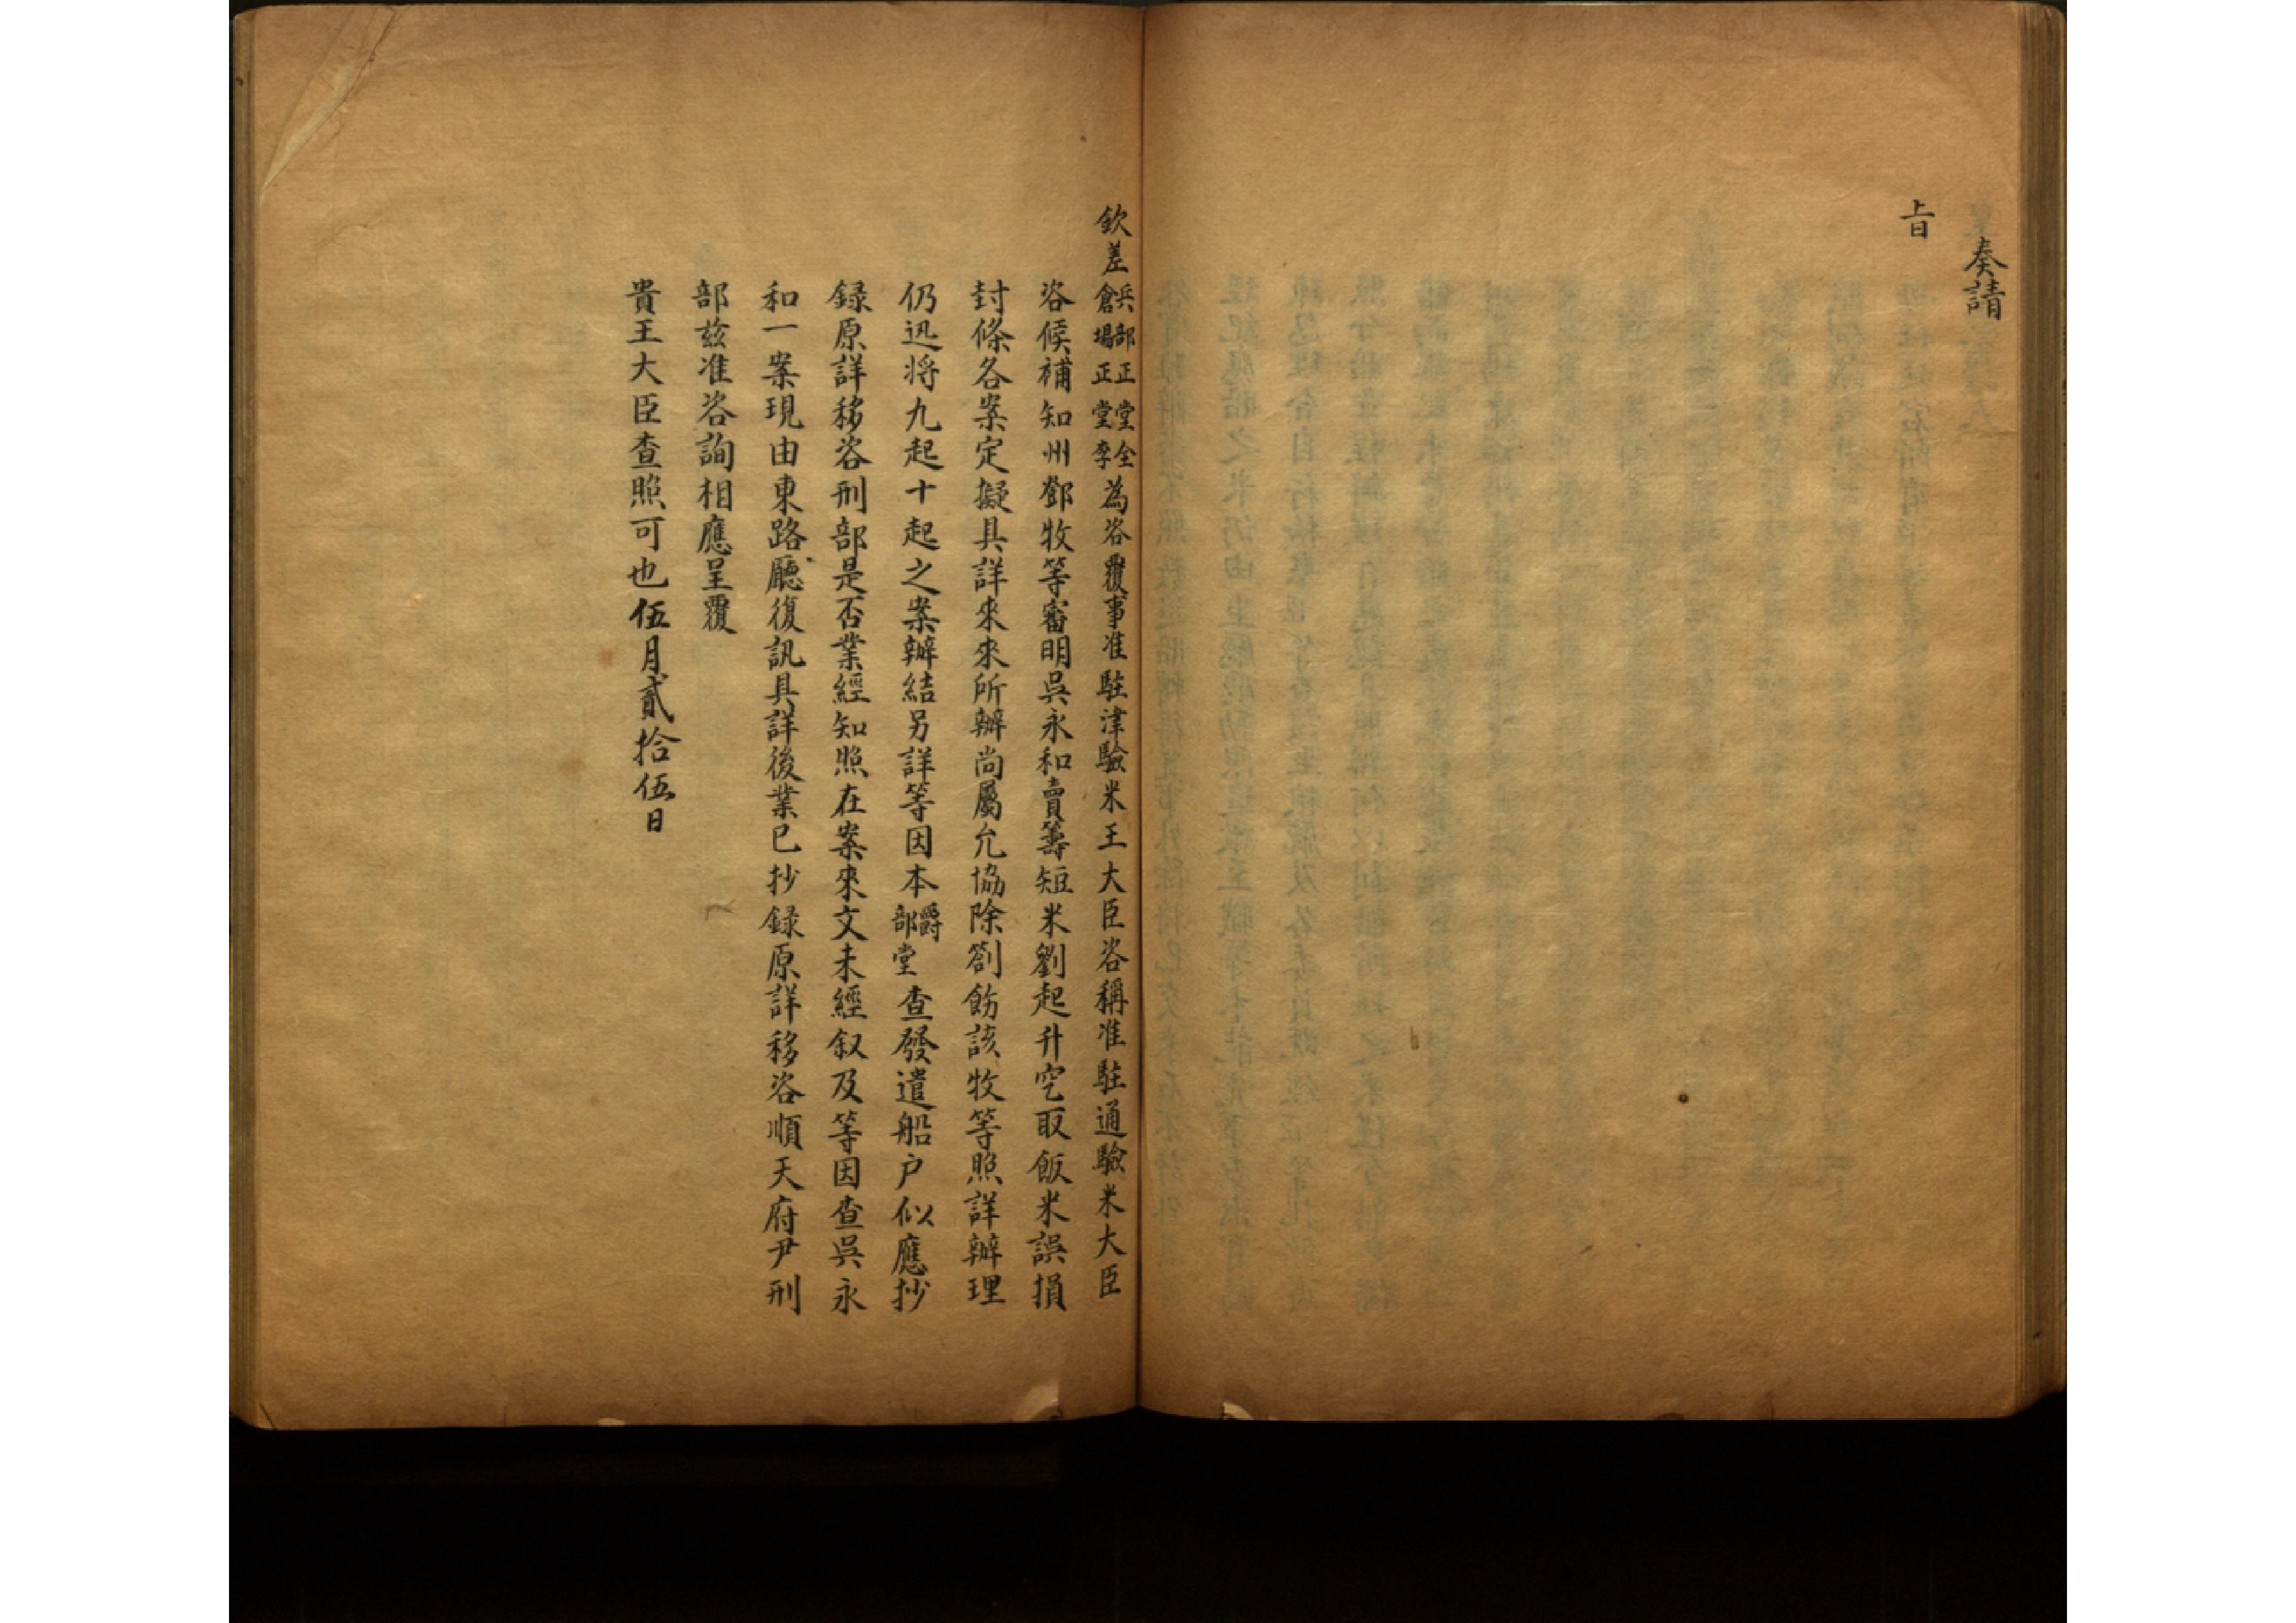 奏請
旨
欽差兵部正堂全倉場正堂李為咨覆事准駐津驗米王大臣咨稱准駐通驗米大臣
咨候補知州鄧牧等審明吳永和賣籌短米劉起升空取飯米誤損
封條各案定擬具詳來來所辦尚屬允協除劄飭該牧等照詳辦理
仍迅将九起十起之案辦結另詳等因本爵部堂查發遣船户似應抄
録原詳移咨刑部是否業經知照在案來文未經叙及等因查吳永
和一案現由東路廳復訊具詳後業已抄録原詳移咨順天府尹刑
部兹准咨詢相應呈覆
貴王大臣查照可也伍月貳拾伍日